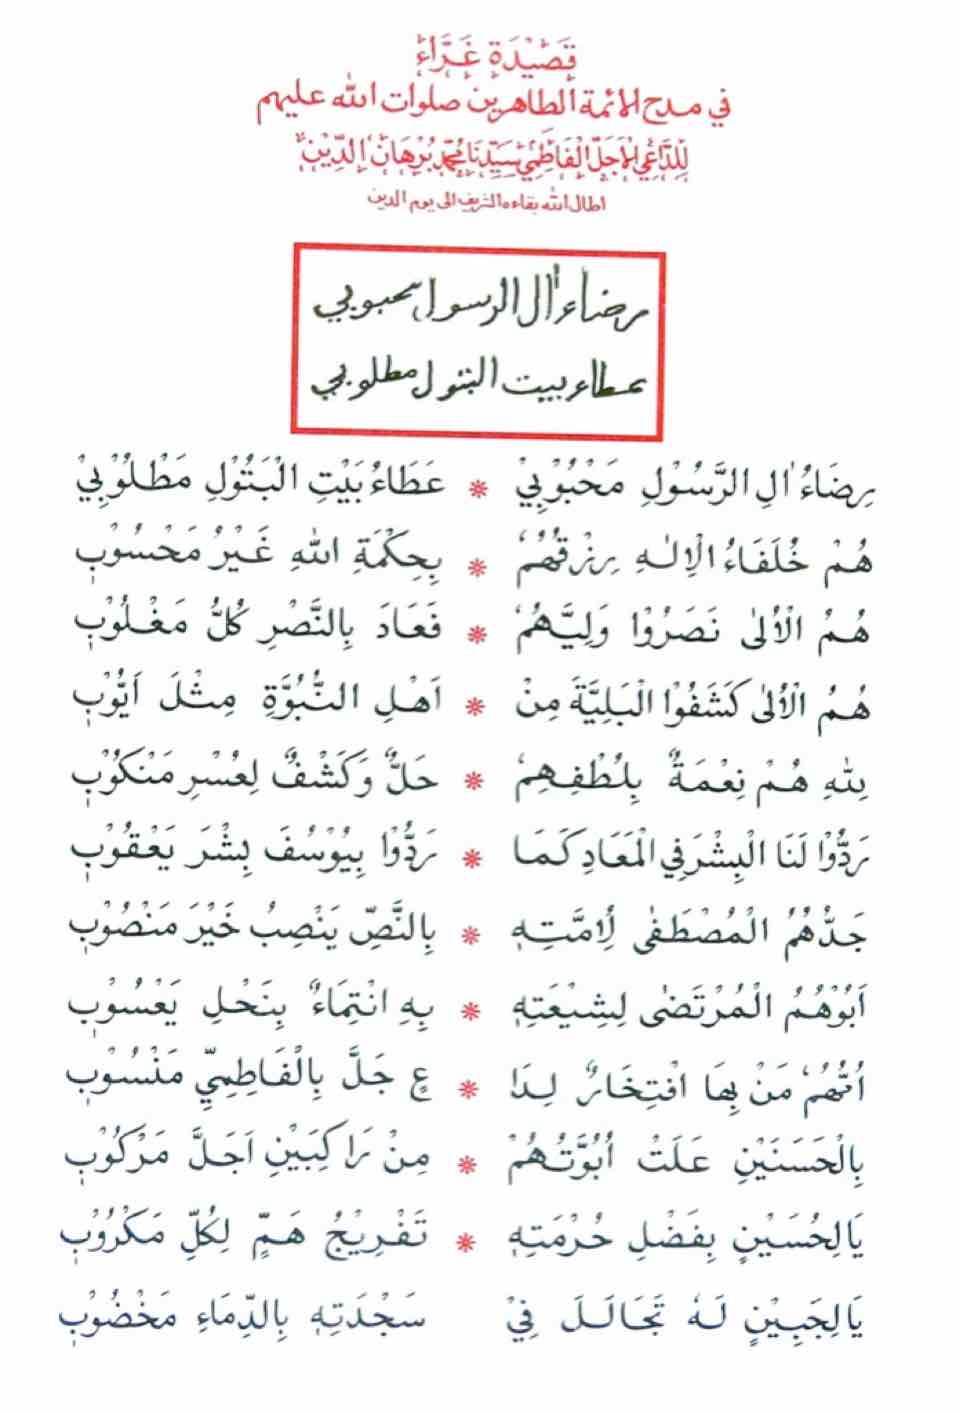 قَصِيْدَةٌ غَرَّاءُ
في مدح الائمة الطاهرين صلوات الله عليهم
لِلدَّاعِي الْاَجَلِّ الْفَاطِمِيِّ سَيِّدِنَا مُحَمَّد بُرْهَان الدِّيْن
اطال الله بقاءه الشريف الى يوم الدين
رضاء اٰل الرسول محبوبي
عطاء بيت البتول مطلوبي
رِضَاءُ اٰلِ الرَّسُوْلِ مَحْبُوْبِيْ * عَطَاءُ بَيْتِ الْبَتُوْلِ مَطْلُوْبِيْ
هُمْ خُلَفَاءُ الْاِلٰهِ رِزْقُهُمُ * بِحِكْمَةِ اللهِ غَيْرُ مَحْسُوْبِ
هُمُ الْاُلٰى نَصَرُوْا وَلِيَّهُمُ * فَعَادَ بِالنَّصْرِ كُلُّ مَغْلُوْبِ
هُمُ الْاُلٰى كَشَفُوْا الْبَلِيَّةَ مِنْ * اَهْلِ النُّبُوَّةِ مِثْلَ اَيُّوْبِ
لِلهِ هُمْ نِعْمَةٌ بِلُطْفِهِمُ * حَلٌّ وَكَشْفٌ لِعُسْرِ مَنْكُوْبِ
رَدُّوْا لَنَا الْبِشْرَ فِي الْمَعَادِ كَمَا * رَدُّوْا بِيُوْسُفَ بِشْرَ يَعْقُوْبِ
جَدُّهُمُ الْمُصْطَفٰى لِاُمَّتِهٖ * بِالنَّصِّ يَنْصِبُ خَيْرَ مَنْصُوْبِ
اَبُوْهُمُ الْمُرْتَضٰى لِشِيْعَتِهٖ * بِهِ انْتِمَاءٌ بِنَحْلِ يَعْسُوْبِ
اُمُّهُمُ مَنْ بِهَا افْتِخَارٌ لِدَا * عٍ جَلَّ بِالْفَاطِمِيِّ مَنْسُوْبِ
بِالْحَسَنَيْنِ عَلَتْ اُبُوَّتُهُمْ * مِنْ رَاكِبَيْنِ اَجَلَّ مَرْكُوْبِ
يَالِحُسَيْنٍ بِفَضْلِ حُرْمَتِهٖ * تَفْرِيْجُ هَمٍّ لِكُلِّ مَكْرُوْبِ
يَالِجَبِيْنٍ لَهٗ تَجَالَلَ فِيْ سَجْدَتِهٖ بِالدِّمَاءِ مَخْضُوْبِ